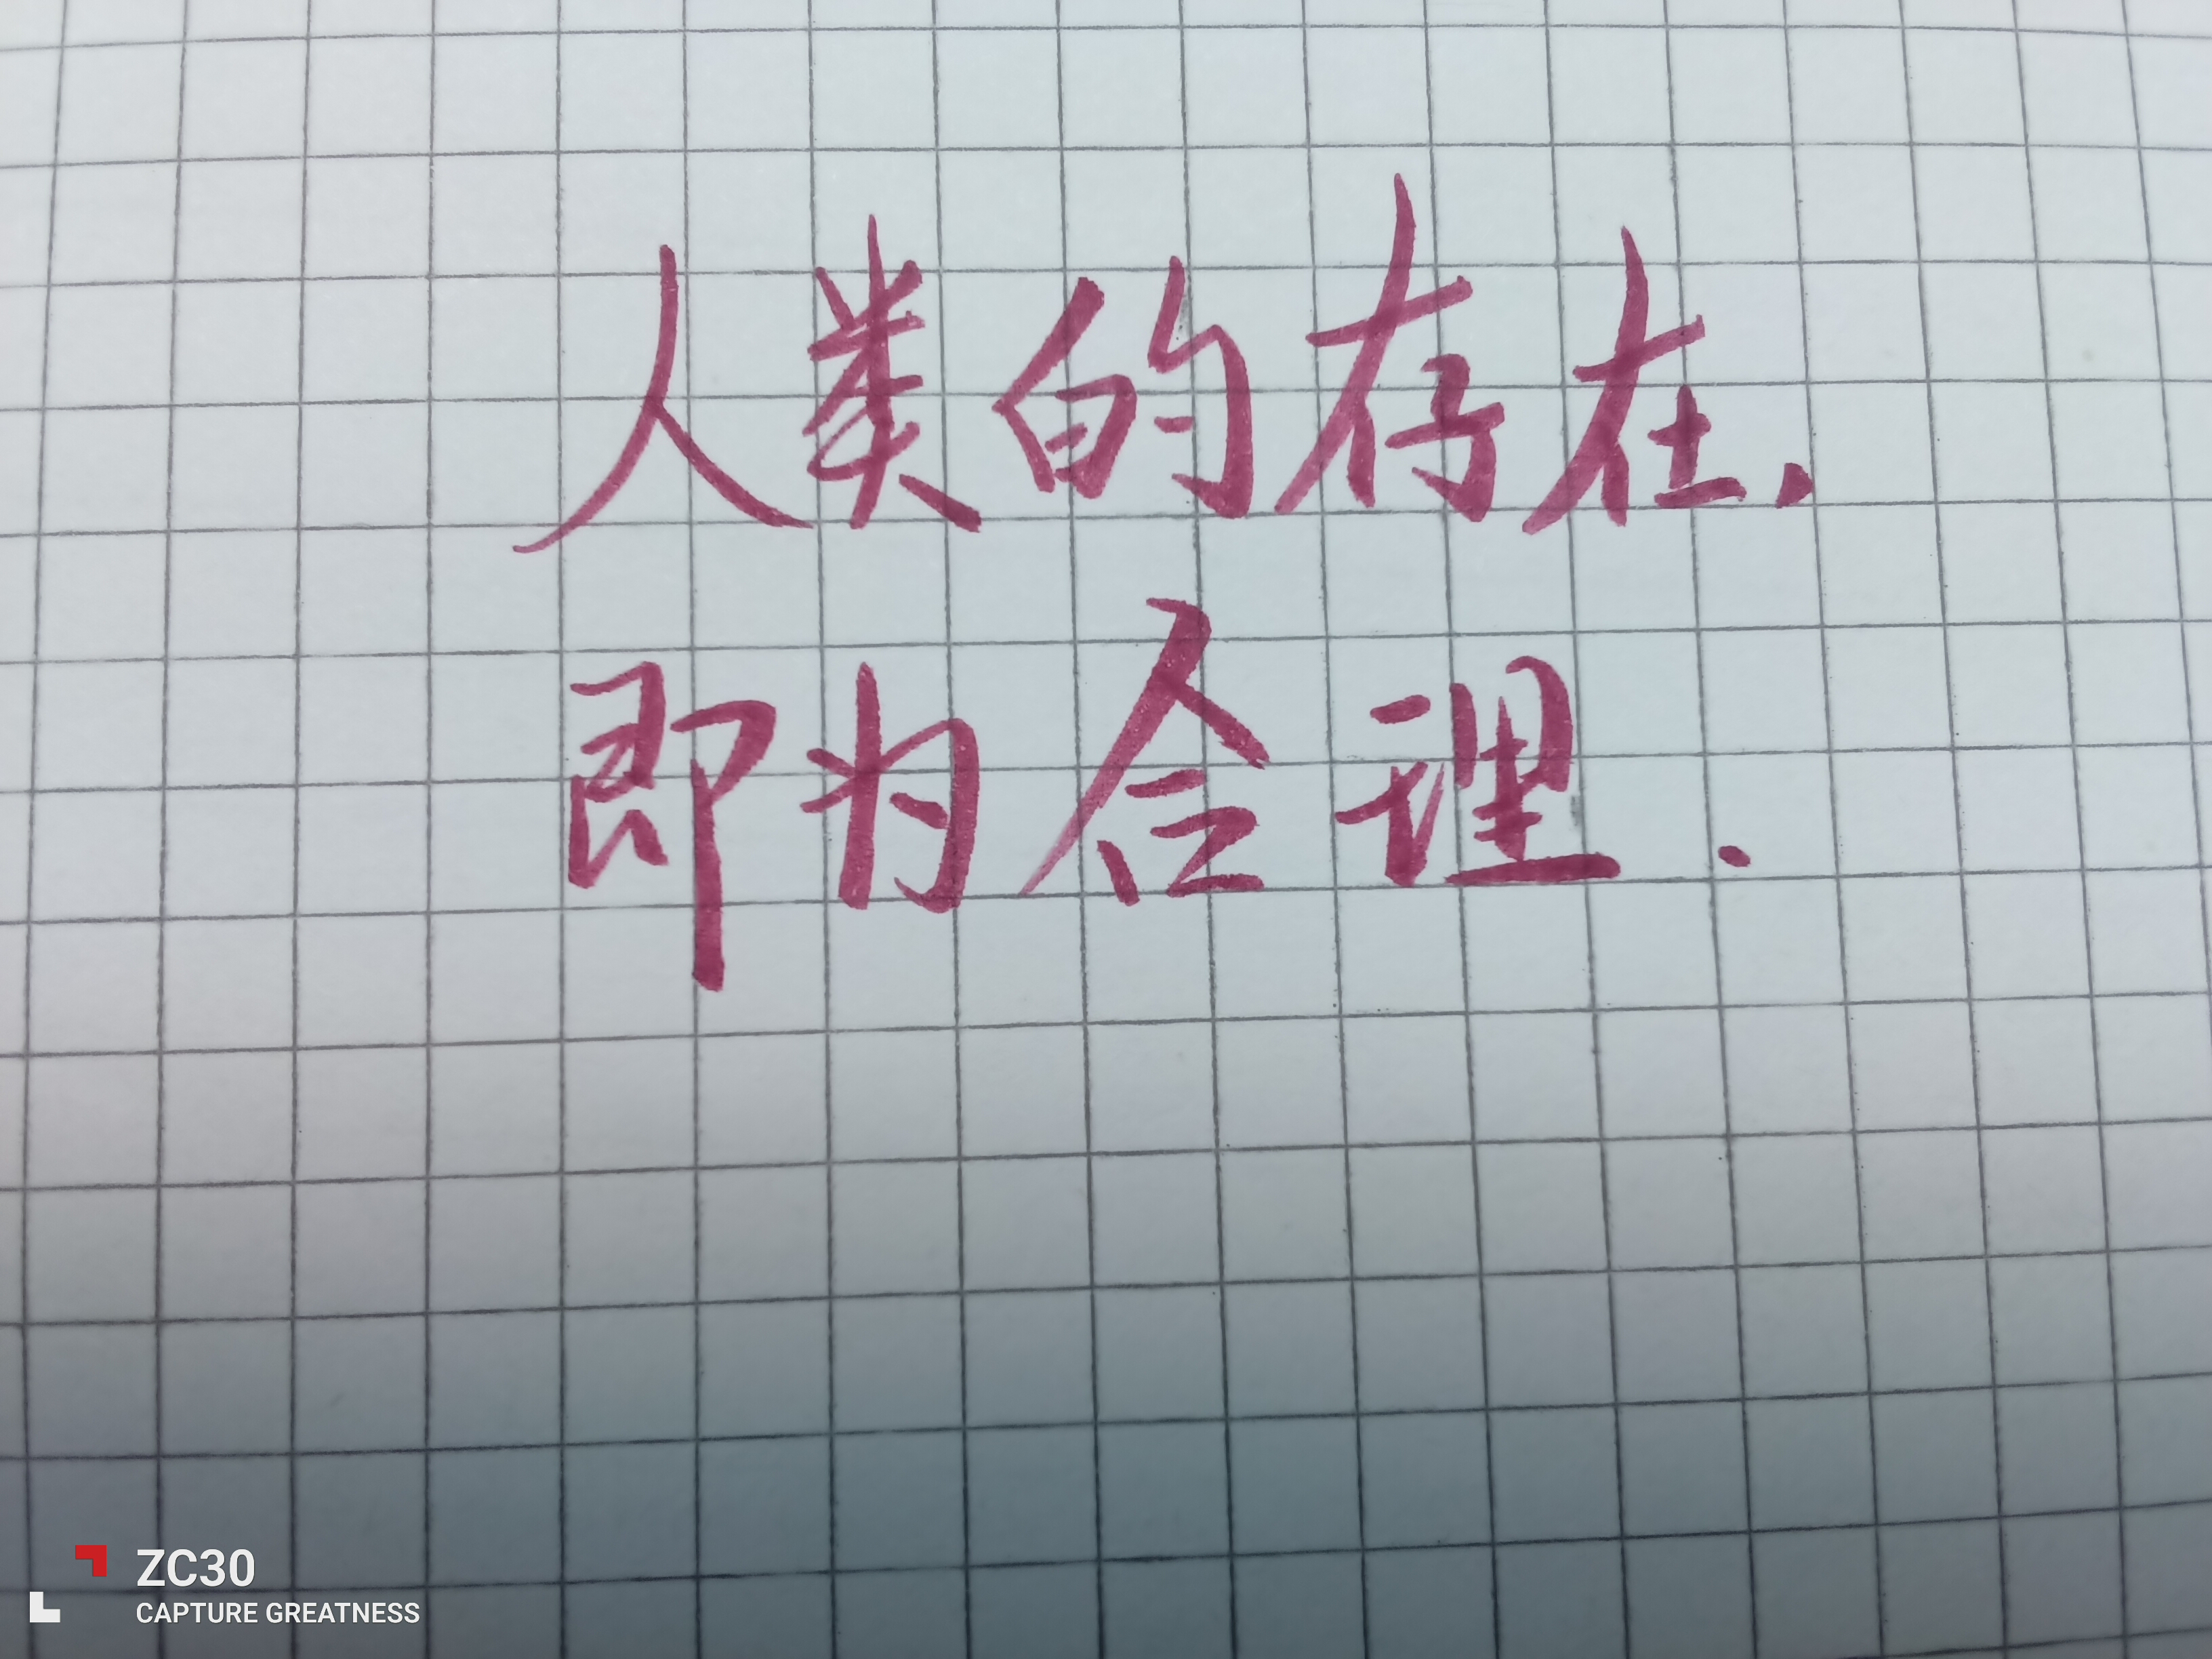 人类的存在.
即为合理.
ZC30
CAPTURE GREATNESS